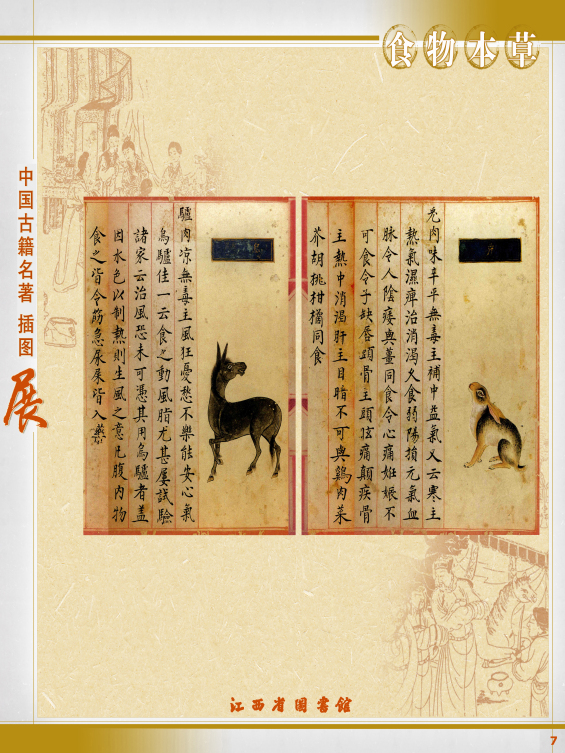 食物本草
中国古籍名著 插图
展
兔
兔肉味辛平無毒主補中益氣又云寒主
熱氣濕痺治消渴久食弱陽損元氣血
脉令人陰痿與薑同食令心痛姙娠不
可食令子缺唇頭骨主頭眩痛顛疾骨
主熱中消渴肝主目暗不可與鷄肉菜
芥胡桃柑橘同食
驢肉凉無毒主風狂憂愁不樂能安心氣
烏驢佳一云食之動風脂尤甚屢試驗
諸家云治風恐未可憑其用烏驢者蓋
因水色以制熱則生風之意凡腹內物
食之皆令筋急尿屎皆入藥
江西省图書館
7